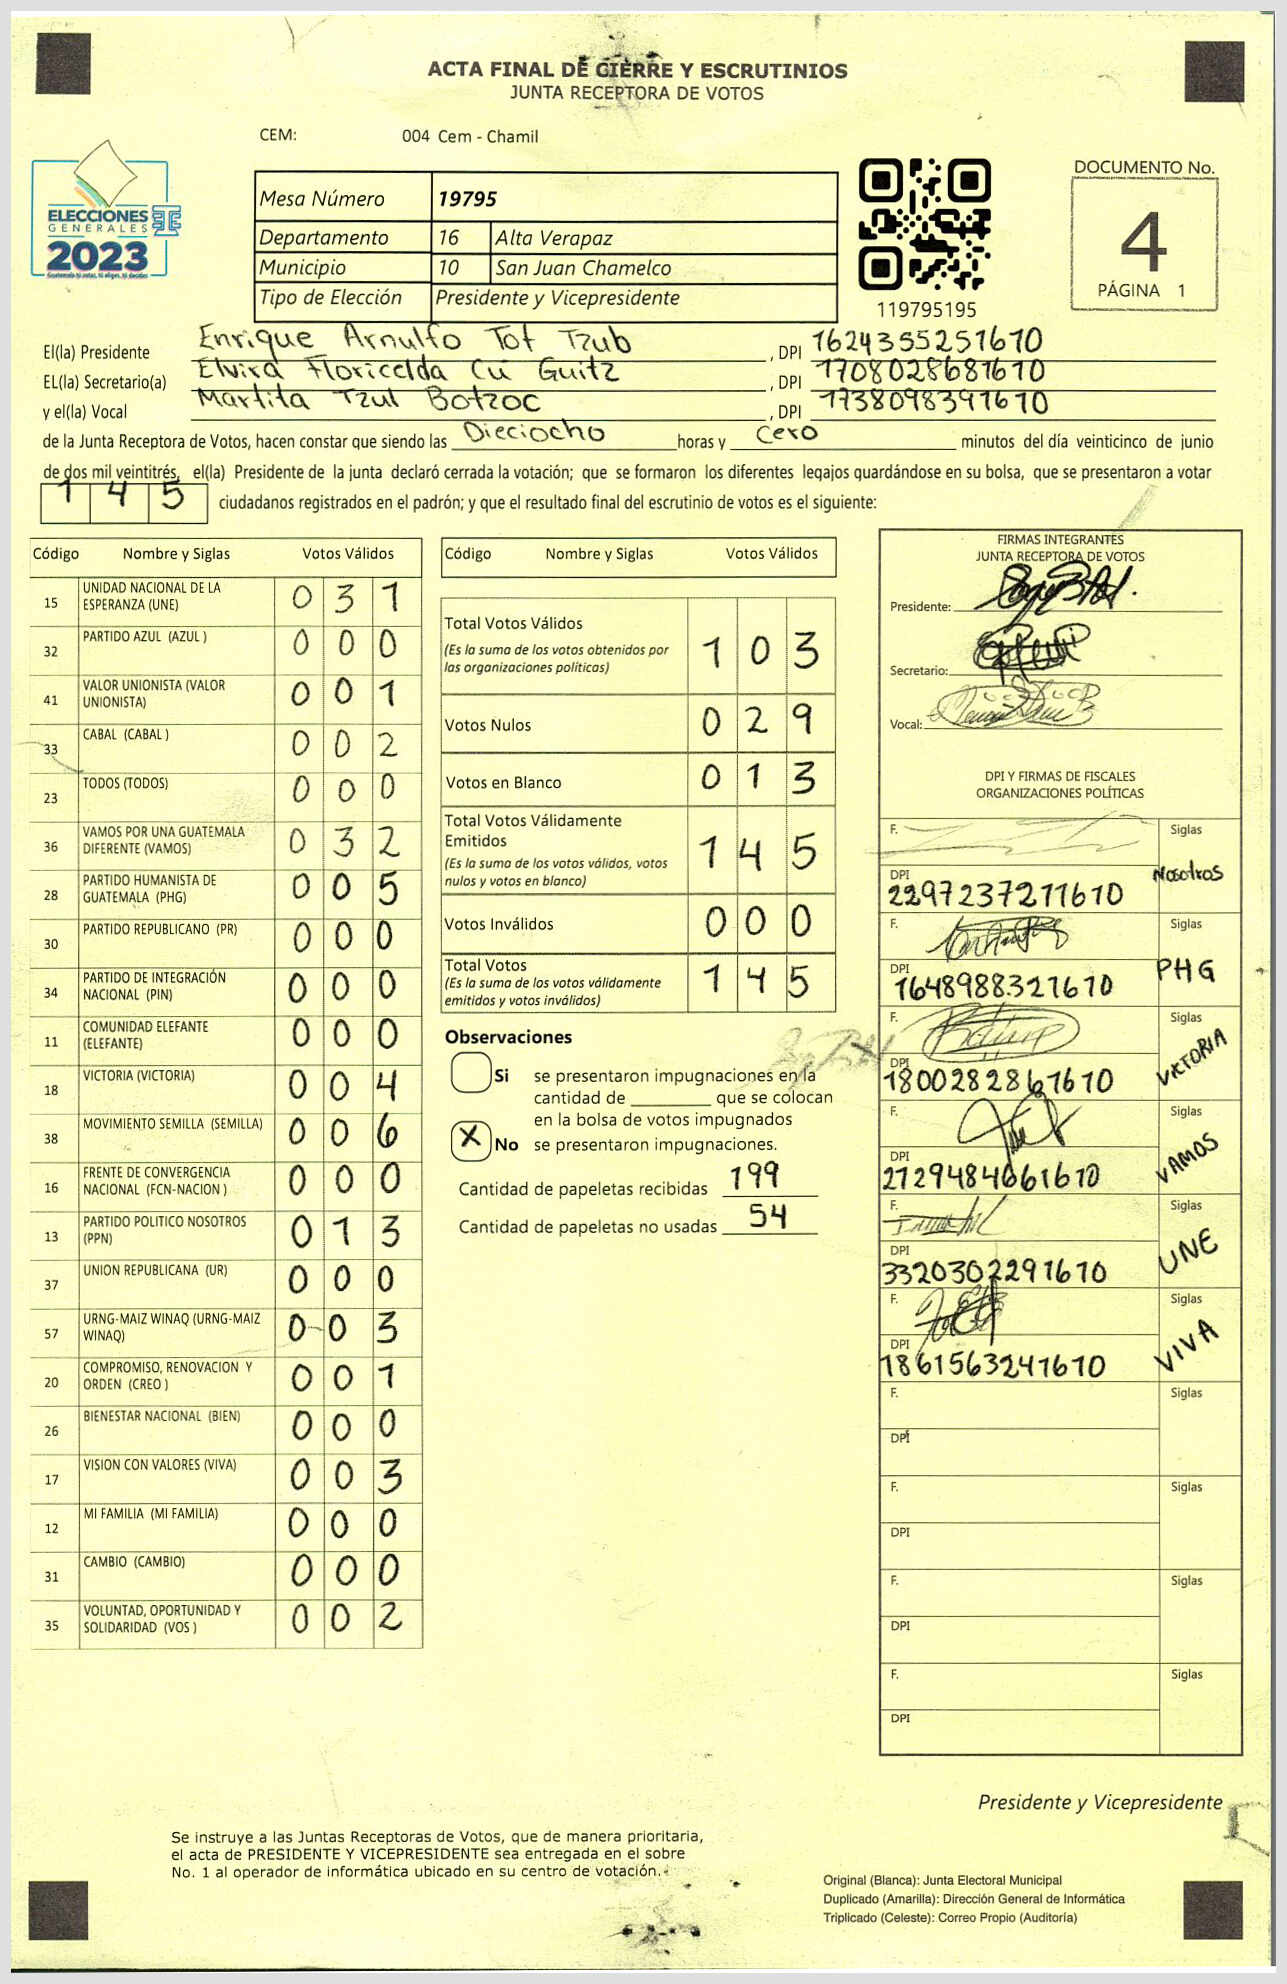 ACTA FINAL DE CIERRE Y ESCRUTINIOS
JUNTA RECEPTORA DE VOTOS
CEM: 004 Cem - Chamil
ELECCIONES
GENERALES
2023
Mesa Número 19795
Departamento 16 Alta Verapaz
Municipio 10 San Juan Chamelco
Tipo de Elección Presidente y Vicepresidente
119795195
DOCUMENTO No.
4
PÁGINA 1
El(la) Presidente Enrique Arnulfo Tot Tzub , DPI 1624355251610
EL(la) Secretario(a) Elvira Floricelda Cú Guitz , DPI 1708028681610
y el(la) Vocal Martita Tzul Botzoc , DPI 1738098391610
de la Junta Receptora de Votos, hacen constar que siendo las Dieciocho horas y Cero minutos del día veinticinco de junio
de dos mil veintitrés, el(la) Presidente de la junta declaró cerrada la votación; que se formaron los diferentes legajos guardándose en su bolsa, que se presentaron a votar
145 ciudadanos registrados en el padrón; y que el resultado final del escrutinio de votos es el siguiente:
Código Nombre y Siglas Votos Válidos
15 UNIDAD NACIONAL DE LA ESPERANZA (UNE) 031
32 PARTIDO AZUL (AZUL ) 000
41 VALOR UNIONISTA (VALOR UNIONISTA) 001
33 CABAL (CABAL ) 002
23 TODOS (TODOS) 000
36 VAMOS POR UNA GUATEMALA DIFERENTE (VAMOS) 032
28 PARTIDO HUMANISTA DE GUATEMALA (PHG) 005
30 PARTIDO REPUBLICANO (PR) 000
34 PARTIDO DE INTEGRACIÓN NACIONAL (PIN) 000
11 COMUNIDAD ELEFANTE (ELEFANTE) 000
18 VICTORIA (VICTORIA) 004
38 MOVIMIENTO SEMILLA (SEMILLA) 006
16 FRENTE DE CONVERGENCIA NACIONAL (FCN-NACION ) 000
13 PARTIDO POLITICO NOSOTROS (PPN) 013
37 UNION REPUBLICANA (UR) 000
57 URNG-MAIZ WINAQ (URNG-MAIZ WINAQ) 003
20 COMPROMISO, RENOVACION Y ORDEN (CREO ) 001
26 BIENESTAR NACIONAL (BIEN) 000
17 VISION CON VALORES (VIVA) 003
12 MI FAMILIA (MI FAMILIA) 000
31 CAMBIO (CAMBIO) 000
35 VOLUNTAD, OPORTUNIDAD Y SOLIDARIDAD (VOS ) 002
Código Nombre y Siglas Votos Válidos
Total Votos Válidos 103
(Es la suma de los votos obtenidos por
las organizaciones políticas)
Votos Nulos 029
Votos en Blanco 013
Total Votos Válidamente
Emitidos 145
(Es la suma de los votos válidos, votos
nulos y votos en blanco)
Votos Inválidos 000
Total Votos 145
(Es la suma de los votos válidamente
emitidos y votos inválidos)
Observaciones
Si se presentaron impugnaciones en la
cantidad de ________ que se colocan
en la bolsa de votos impugnados
X No se presentaron impugnaciones.
Cantidad de papeletas recibidas 199
Cantidad de papeletas no usadas 54
FIRMAS INTEGRANTES
JUNTA RECEPTORA DE VOTOS
Presidente:
Secretario:
Vocal:
DPI Y FIRMAS DE FISCALES
ORGANIZACIONES POLÍTICAS
F. Siglas
DPI 2297237211610 Nosotros
F. Siglas
DPI 1648988321610 PHG
F. Siglas
DPI 1800282861610 VICTORIA
F. Siglas
DPI 2729484661610 VAMOS
F. Siglas
DPI 3320302291610 UNE
F. Siglas
DPI 1861563241610 VIVA
F. Siglas
DPI
F. Siglas
DPI
F. Siglas
DPI
F. Siglas
DPI
Presidente y Vicepresidente
Se instruye a las Juntas Receptoras de Votos, que de manera prioritaria,
el acta de PRESIDENTE Y VICEPRESIDENTE sea entregada en el sobre
No. 1 al operador de informática ubicado en su centro de votación.
Original (Blanca): Junta Electoral Municipal
Duplicado (Amarilla): Dirección General de Informática
Triplicado (Celeste): Correo Propio (Auditoría)